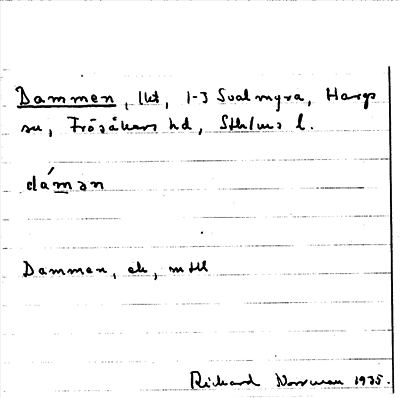 Dammen, lht, 1-3 Svalmyra, Hargs
sn, Frösåkers hd, Sthlms l.
dámən
Dammen, ek, mtll
Richard Norrman 1935.